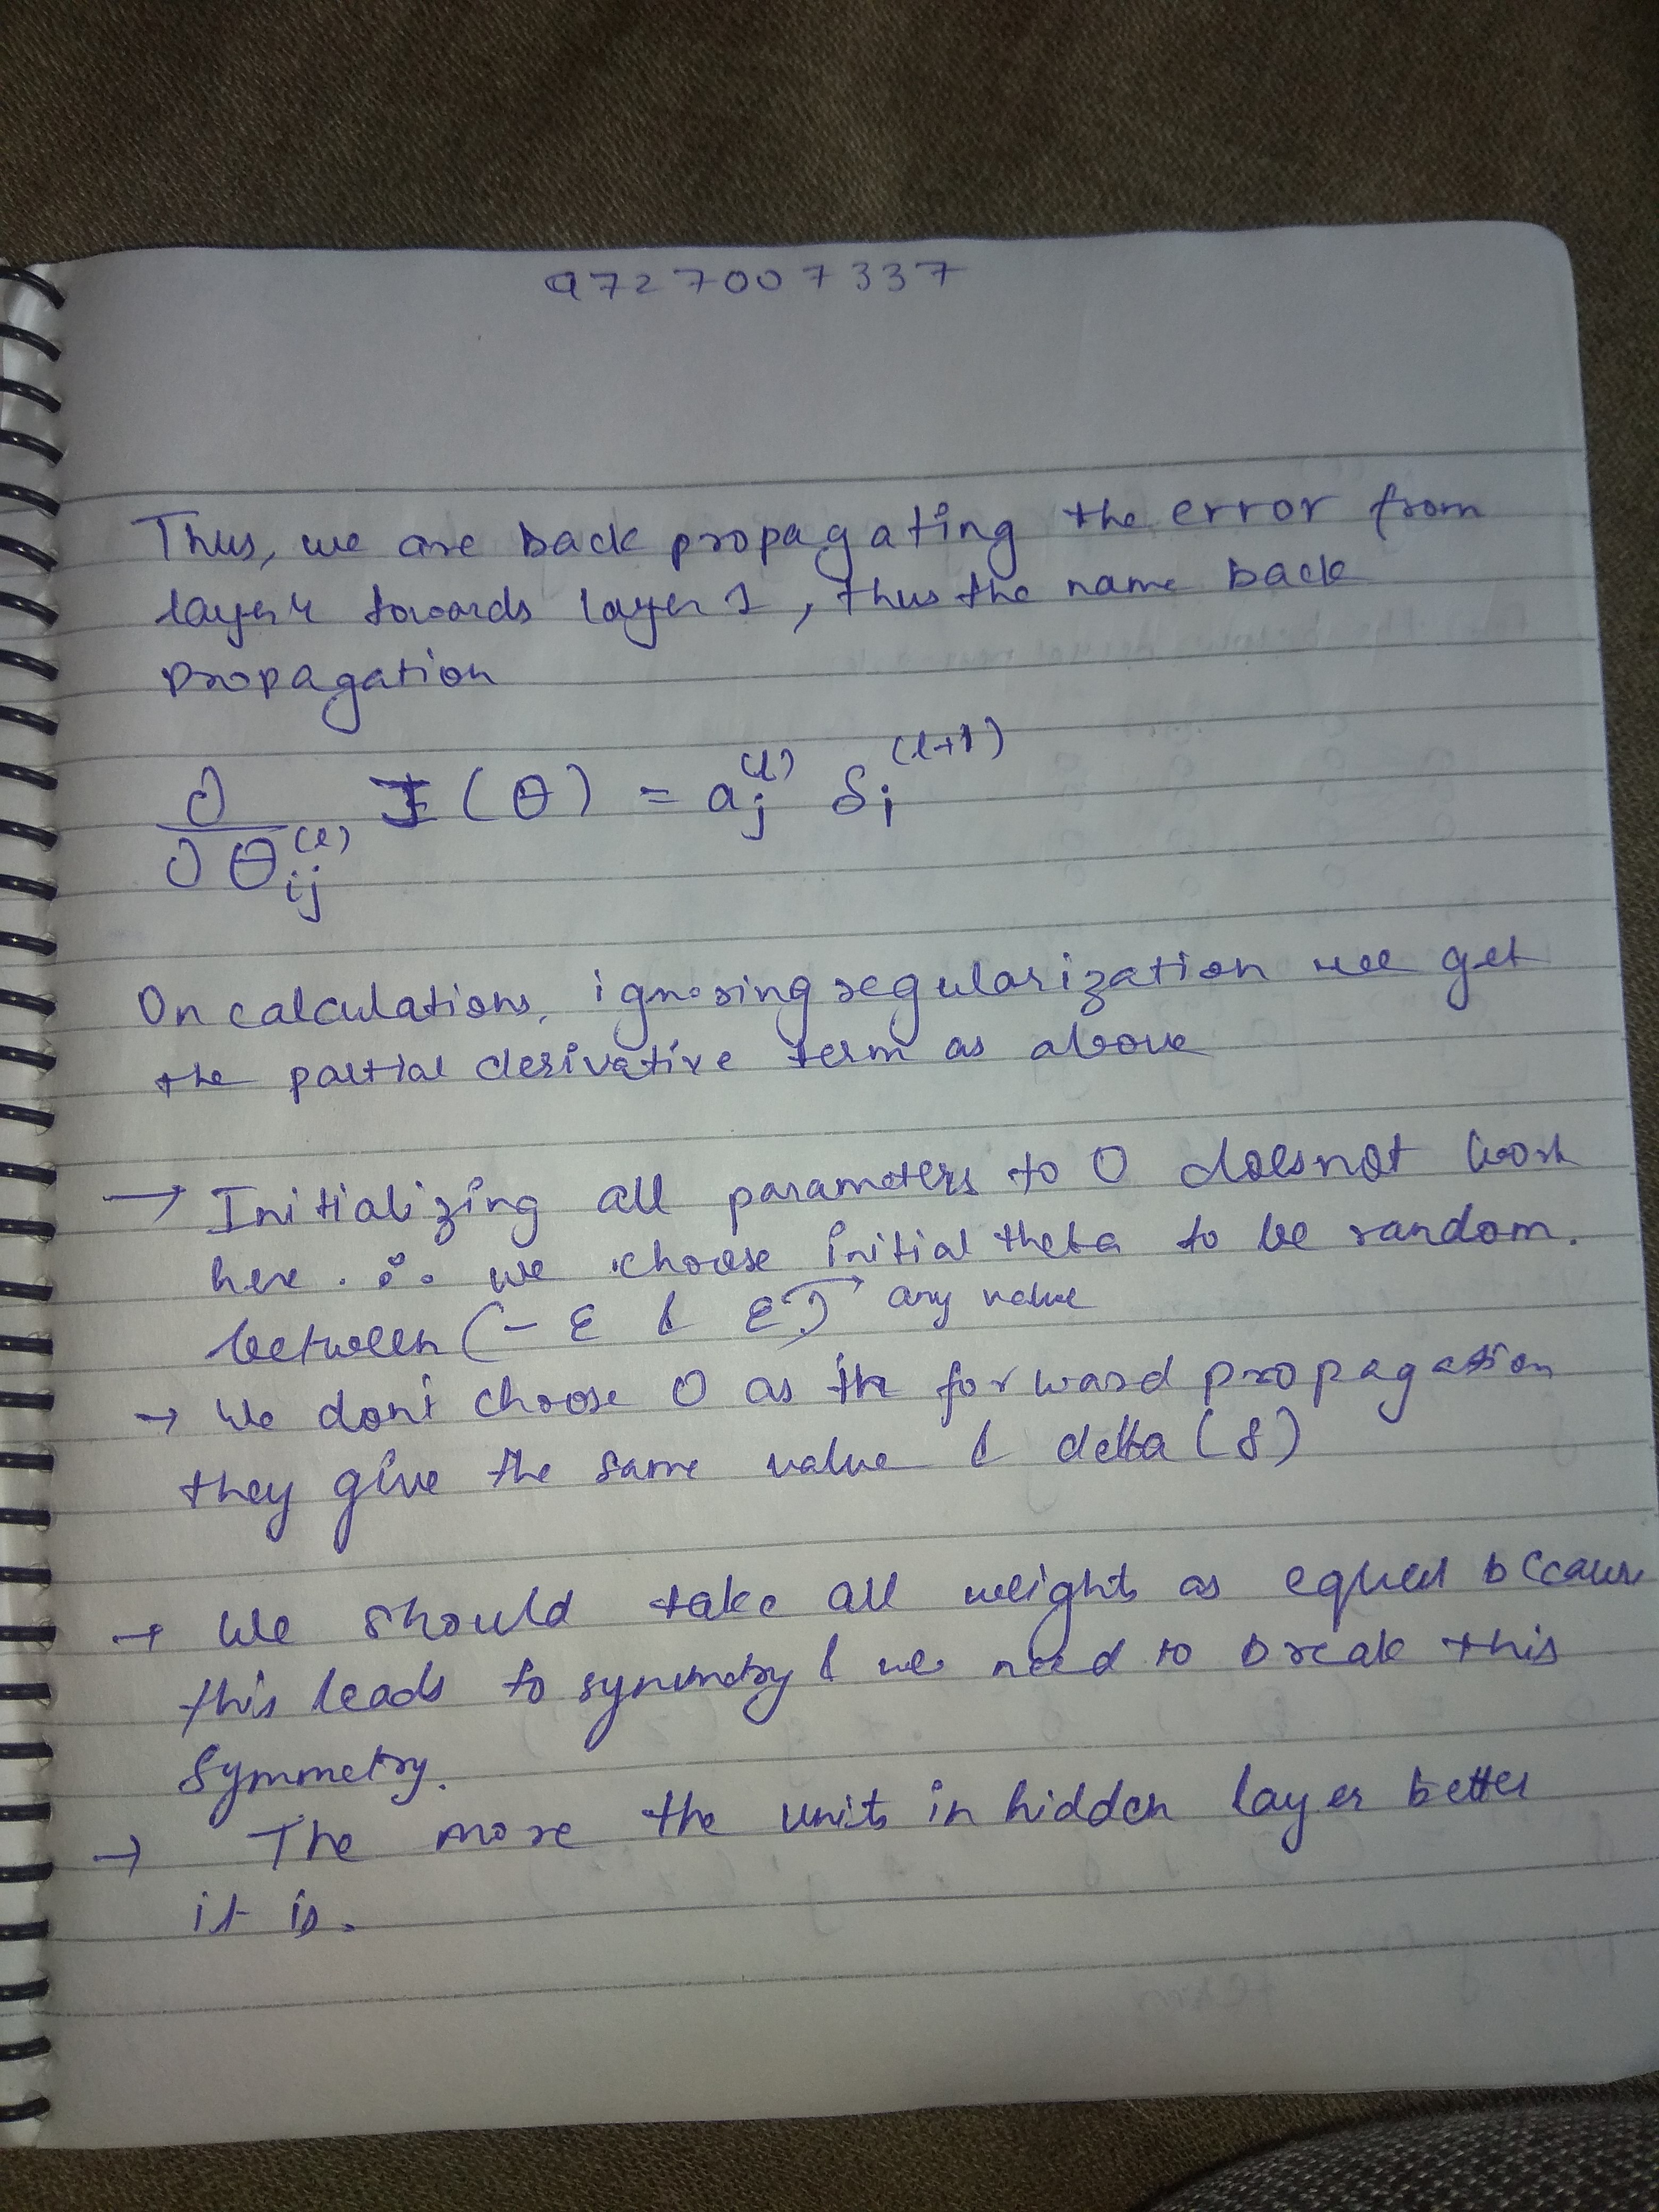 9727007337
Thus, we are back propagating the error from
layer 4 towards layer 1, thus the name back
propagation
∂/∂θij^(l) J(θ) = aj^(l) δi^(l+1)
On calculations, ignoring regularization we get
the partial derivative term as above
→ Initializing all parameters to 0 doesnot work
here. ∴ we choose initial theta to be random.
between (-ε & ε) → any value
→ We don't choose 0 as the forward propagation
they give the same value & delta (δ)
→ We should take all weights as equal because
this leads to symmetry & we need to break this
symmetry.
→ The more the units in hidden layer better
it is.